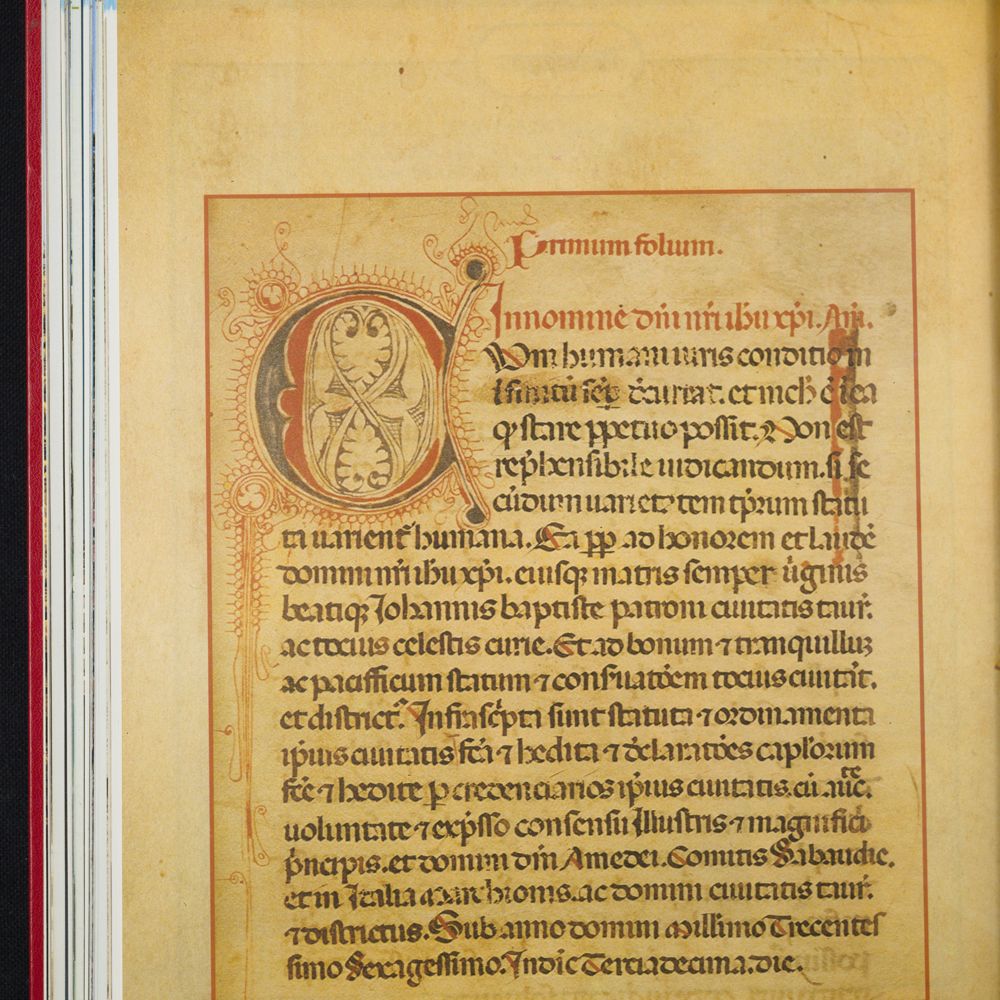 Primum folium.
In nomine dñi nr̃i ihũ xp̃i. Am̃.
Cum humani iuris conditio in
et inch̃ ẽ i ea
q̃ stare ꝑpetuo possit. Non est
rep̃hensibile iudicandum. si se
cũdum uarietatem tp̃rum statu
ta uarient̃ humana. Ea ꝓꝑ ad honorem et laudẽ
domini nr̃i ihũ xp̃i. eiusqꝫ matris semper ũginis
beatiqꝫ Iohannis baptiste patroni ciuitatis taur̃.
ac tocius celestis curie. Et ad bonum ⁊ tranquilluꝫ
ac pacifficum statum ⁊ consr̃uatõem tocius ciuitat̃.
et district̃. Infrasc̃pta sunt statuta ⁊ ordinamenta
ip̃ius ciuitatis fc̃a ⁊ hedita ⁊ declaratões capl̃orum
fc̃e ⁊ hedite ꝑ credenciarios ip̃ius ciuitatis. cũ auc̃te.
uoluntate ⁊ exp̃sso consensu Illustris ⁊ magnifici
p̃ncipis. et domini dñi Amedei. Comitis Sabaudie.
et in Italia Marchionis. ac domini ciuitatis taur̃.
⁊ districtus. Sub anno domini Millimo Trecentes
simo Sexagessimo. Indic̃ Terciadecima. die.